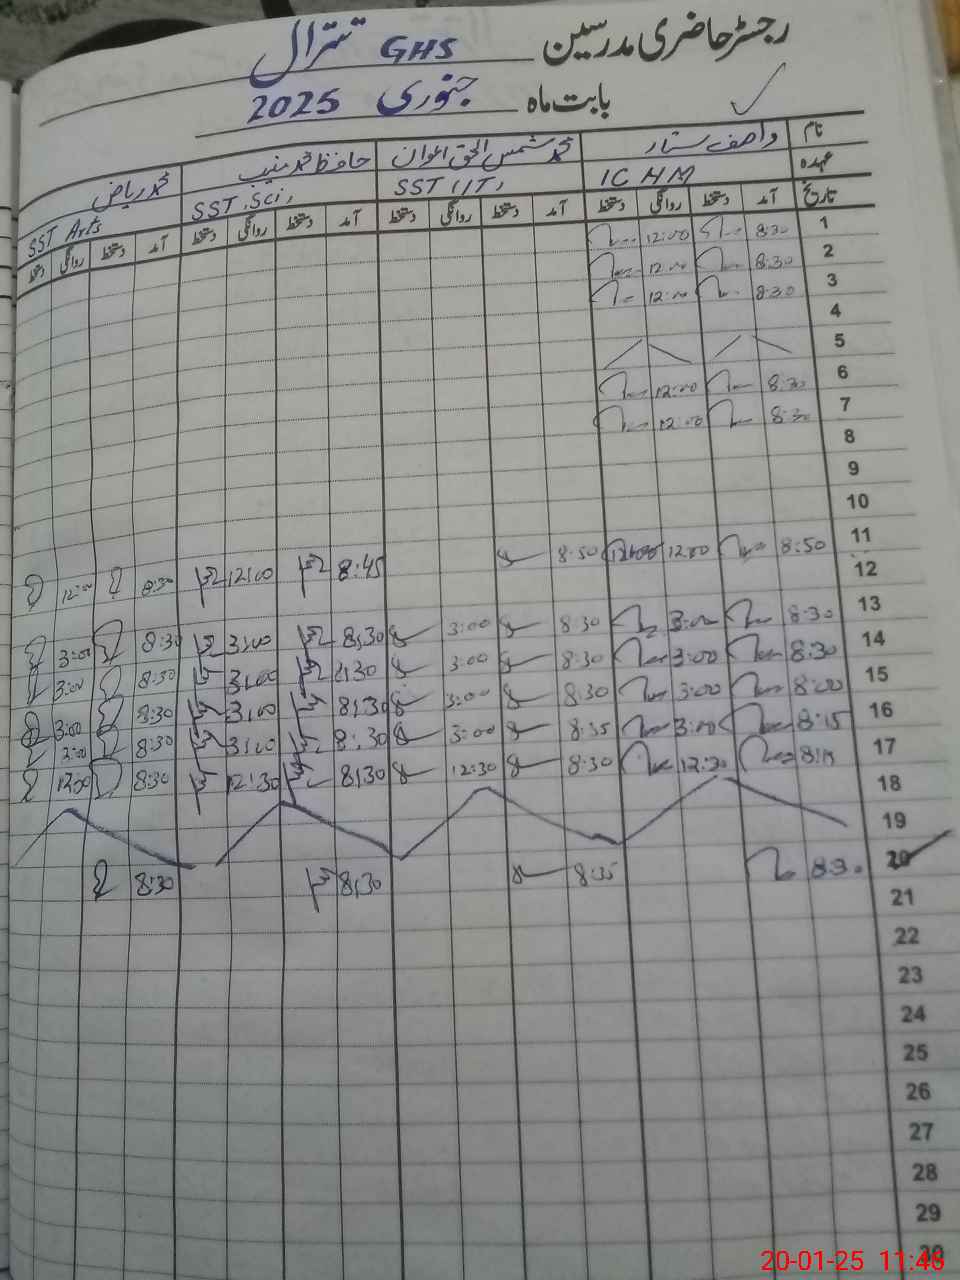 رجسٹر حاضری مدرسین GHS تترال
بابت ماہ جنوری 2025
نام واصف ستار محمد شمس الحق اعوان حافظ محمد منیب محمد ریاض
عہدہ IC HM SST (IT) SST (Sci) SST Arts
تاریخ آمد دستخط روانگی دستخط آمد دستخط روانگی دستخط آمد دستخط روانگی دستخط آمد دستخط روانگی دستخط
1 8:30 12:00
2 8:30 12:00
3 8:30 12:00
4
5
6 8:30 12:00
7 8:30 12:00
8
9
10
11 8:50 12:00 8:50 8:45 12:00 8:30 12:00
12
13 8:30 3:00 8:30 3:00 8:30 3:00 8:30 3:00
14 8:30 3:00 8:30 3:00 8:30 3:00 8:30 3:00
15 8:00 3:00 8:30 3:00 8:30 3:00 8:30 3:00
16 8:15 3:00 8:35 3:00 8:30 3:00 8:30 3:00
17 12:30 8:30 12:30 8:30 12:30 8:30 12:00
18
19
20 8:30 8:35 8:30 8:30
21
22
23
24
25
26
27
28
29
30
20-01-25 11:46